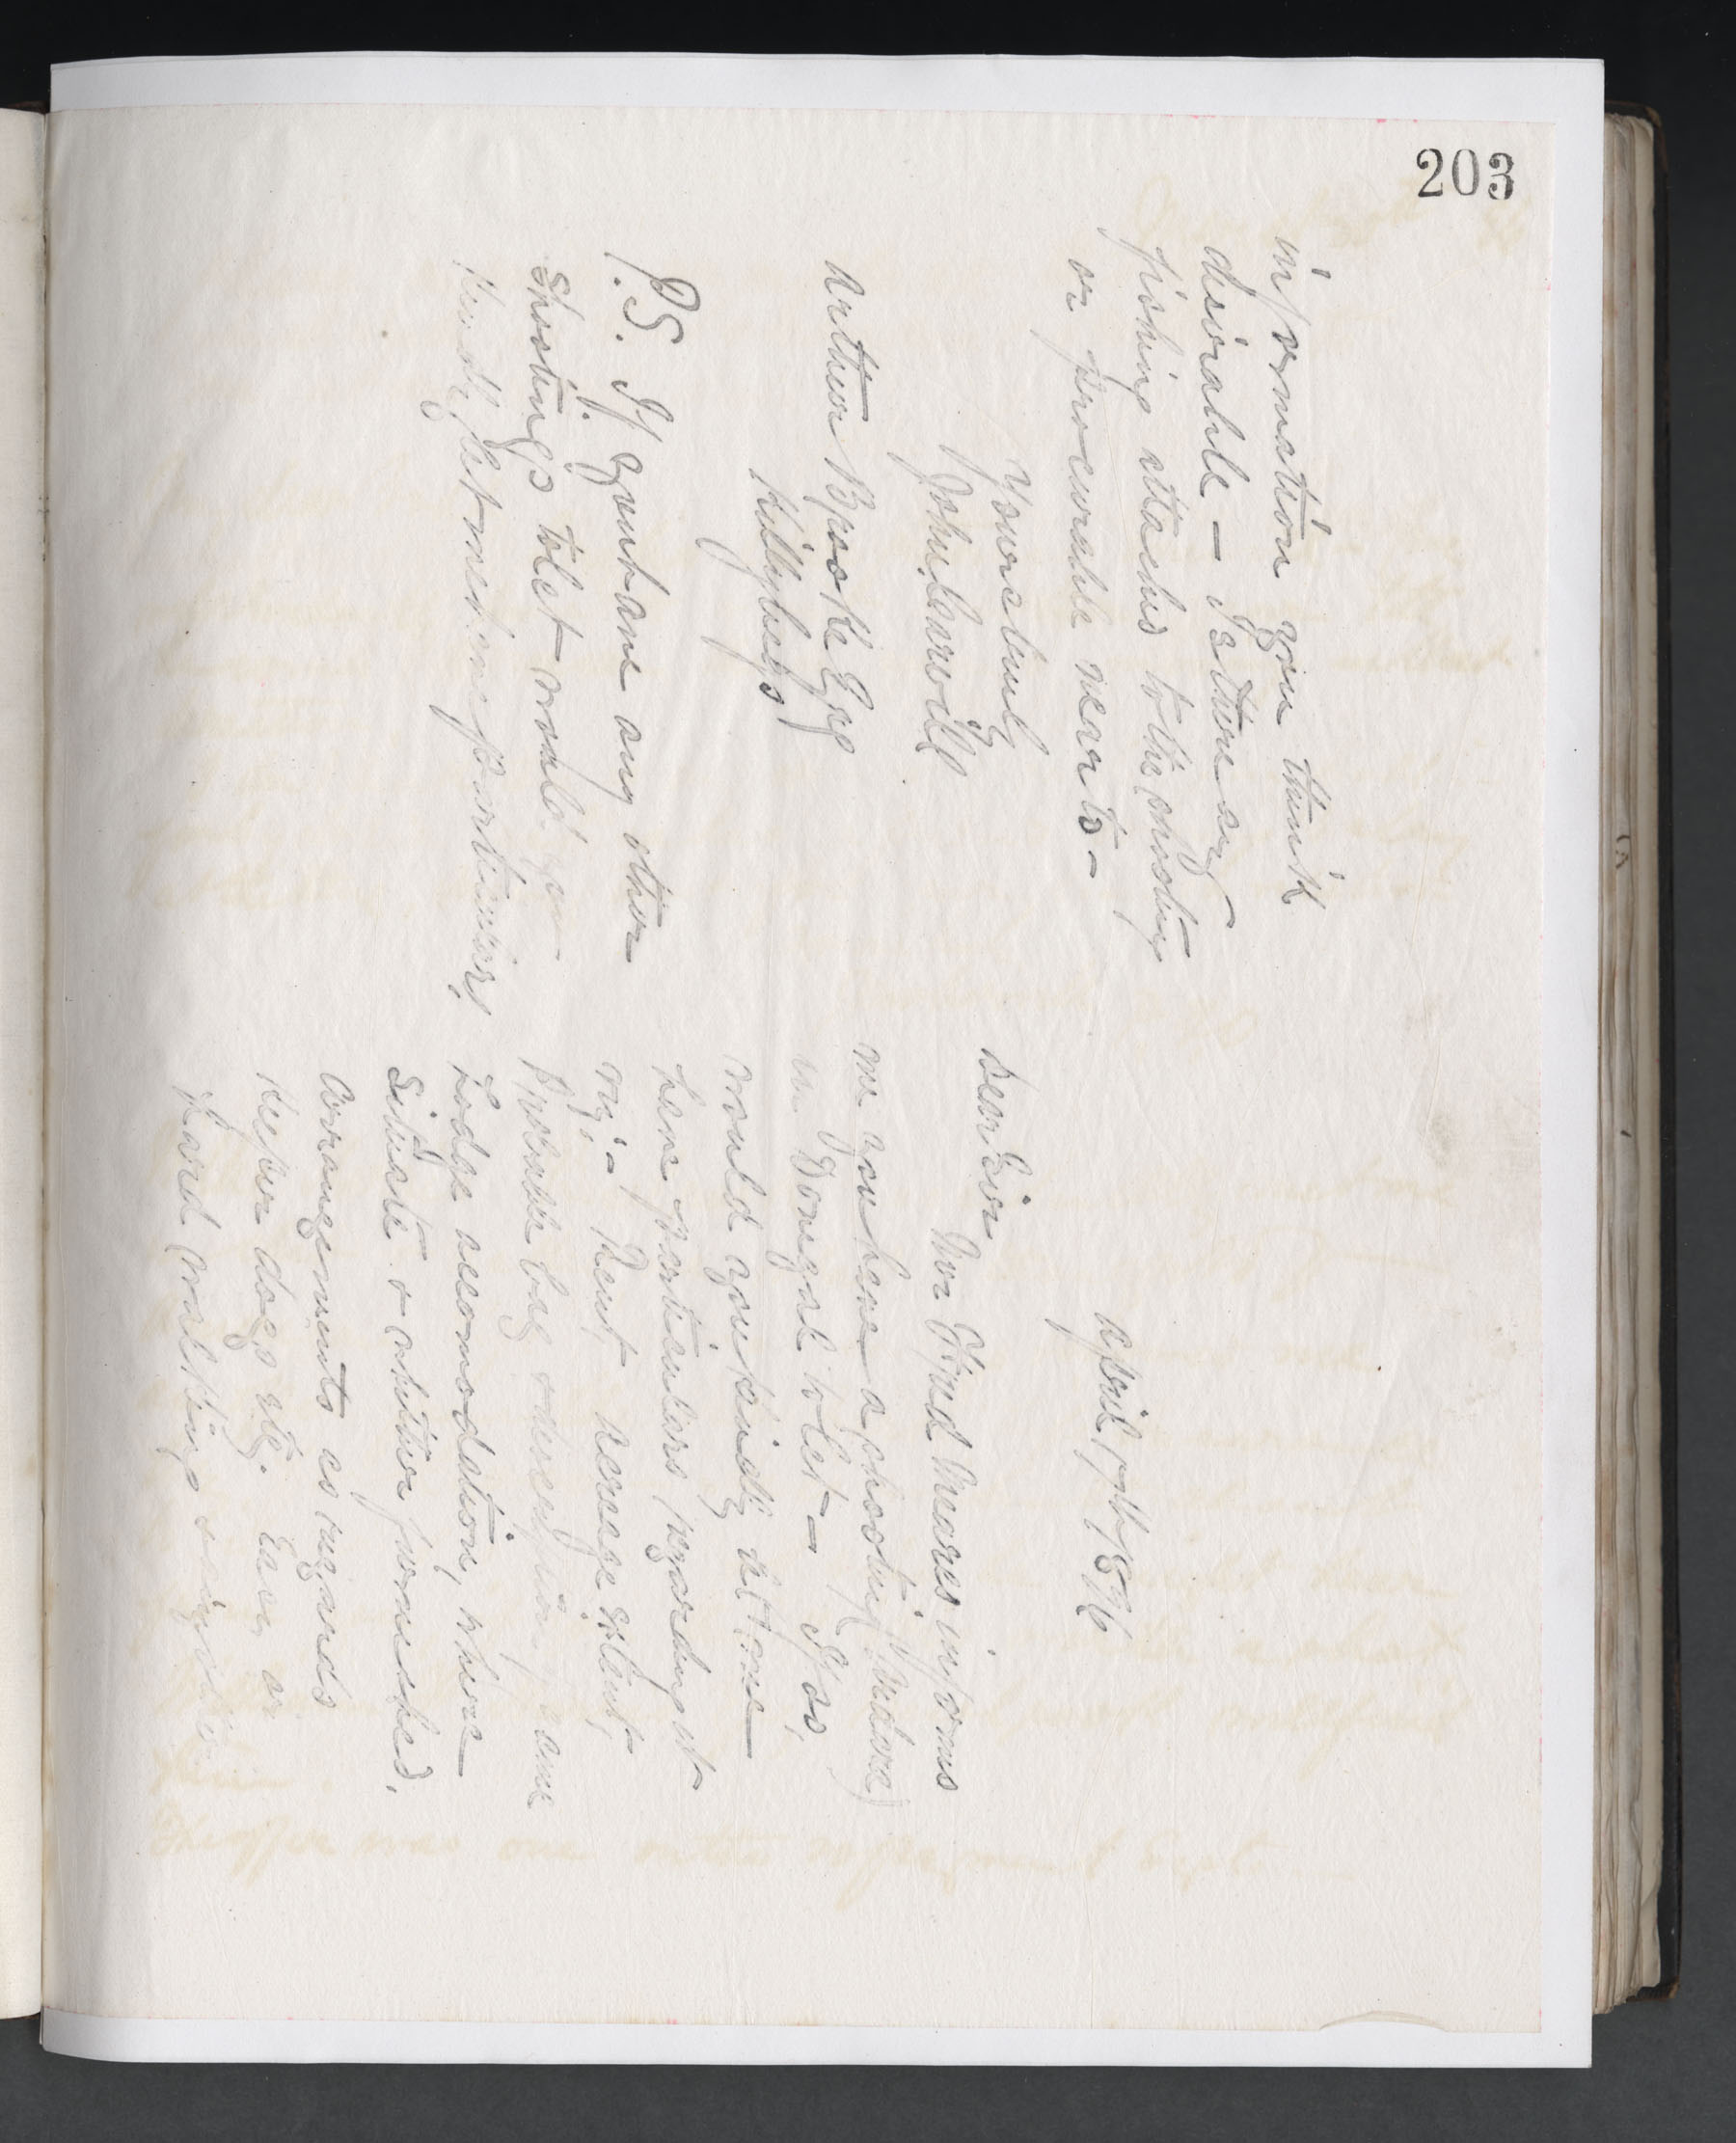 203
information you think
desirable — Is there any
fishing attached to the shooting
or procurable near to —
Yours truly
John Carvill
Arthur Brooke Esqe
Killybegs
P.S. If you have any other
Shootings to let would you
kindly let me have particulars
April 17th 1896
Dear Sir
Mr Mears informs
me you have a shooting
in Donegal to let — If so,
would you kindly let me
have particulars regarding it
viz; — Rent acreage extent,
Probable bag & description game
Lodge accomodation, where
Situate & whether furnished.
Arrangements as regards
Keeper dogs etc. Easy or
hard walking